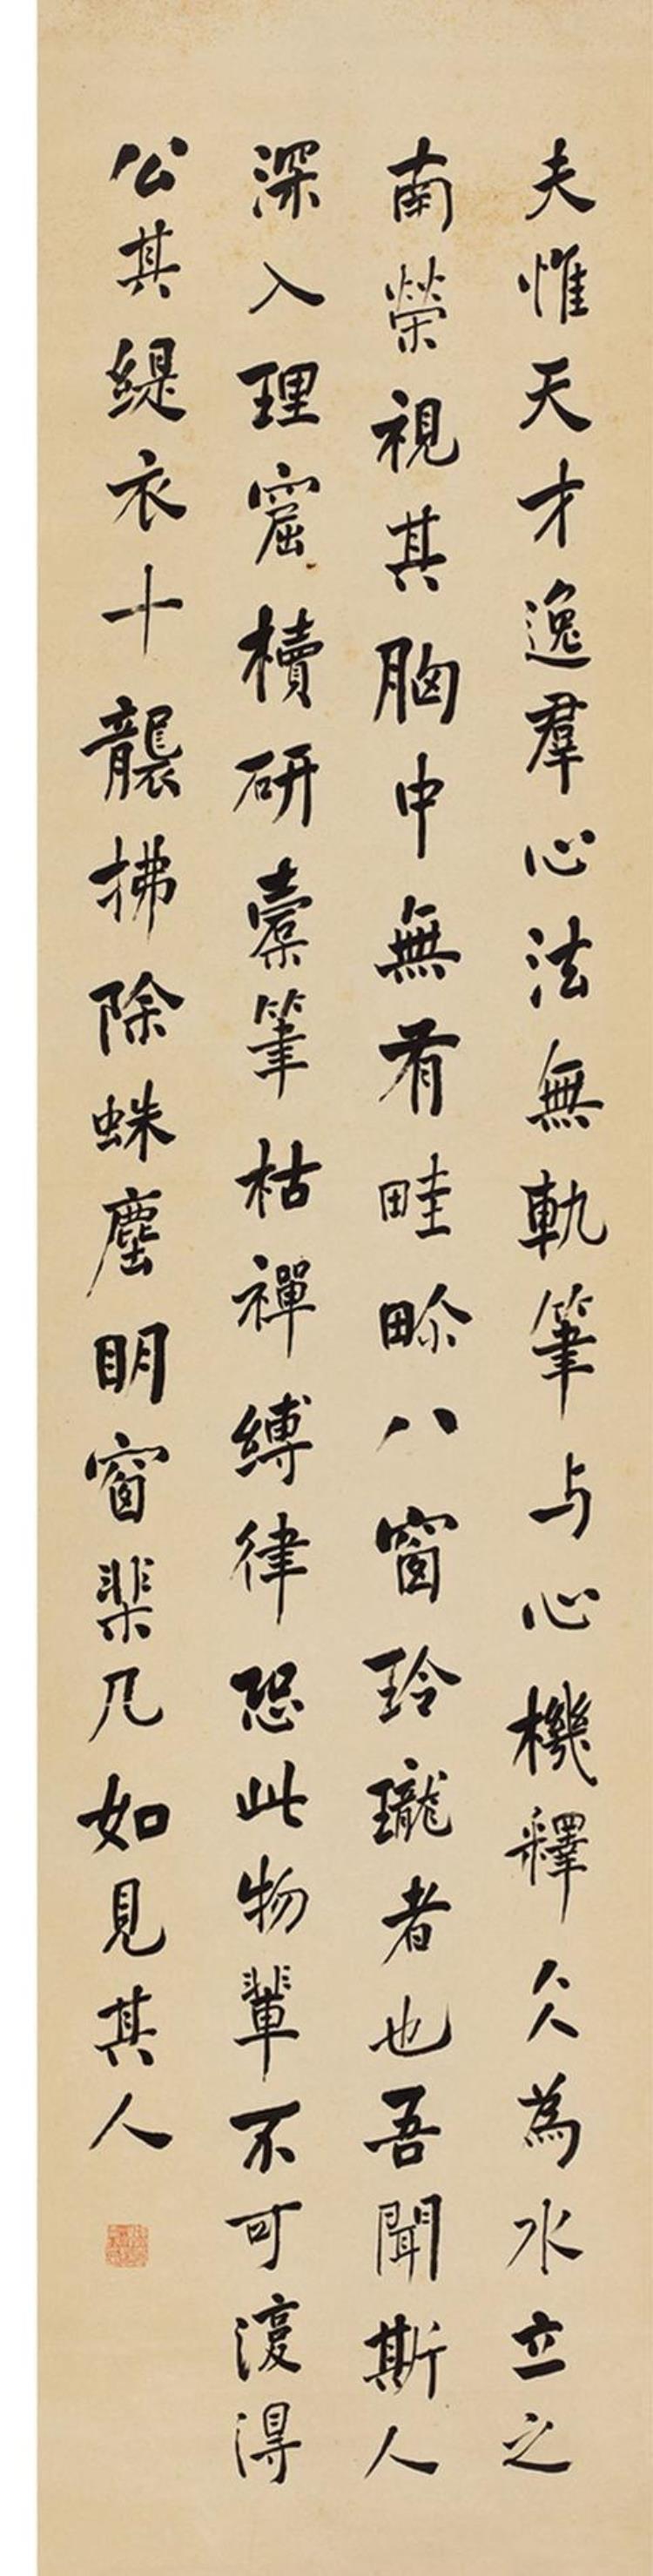 夫惟天才逸羣心法無軌筆与心機釋久為水立之
南榮視其胸中無有畦畛八窗玲瓏者也吾聞斯人
深入理窟櫝研囊筆枯禪縛律恐此物輩不可復得
公其緹衣十襲拂除蛛塵明窗棐几如見其人